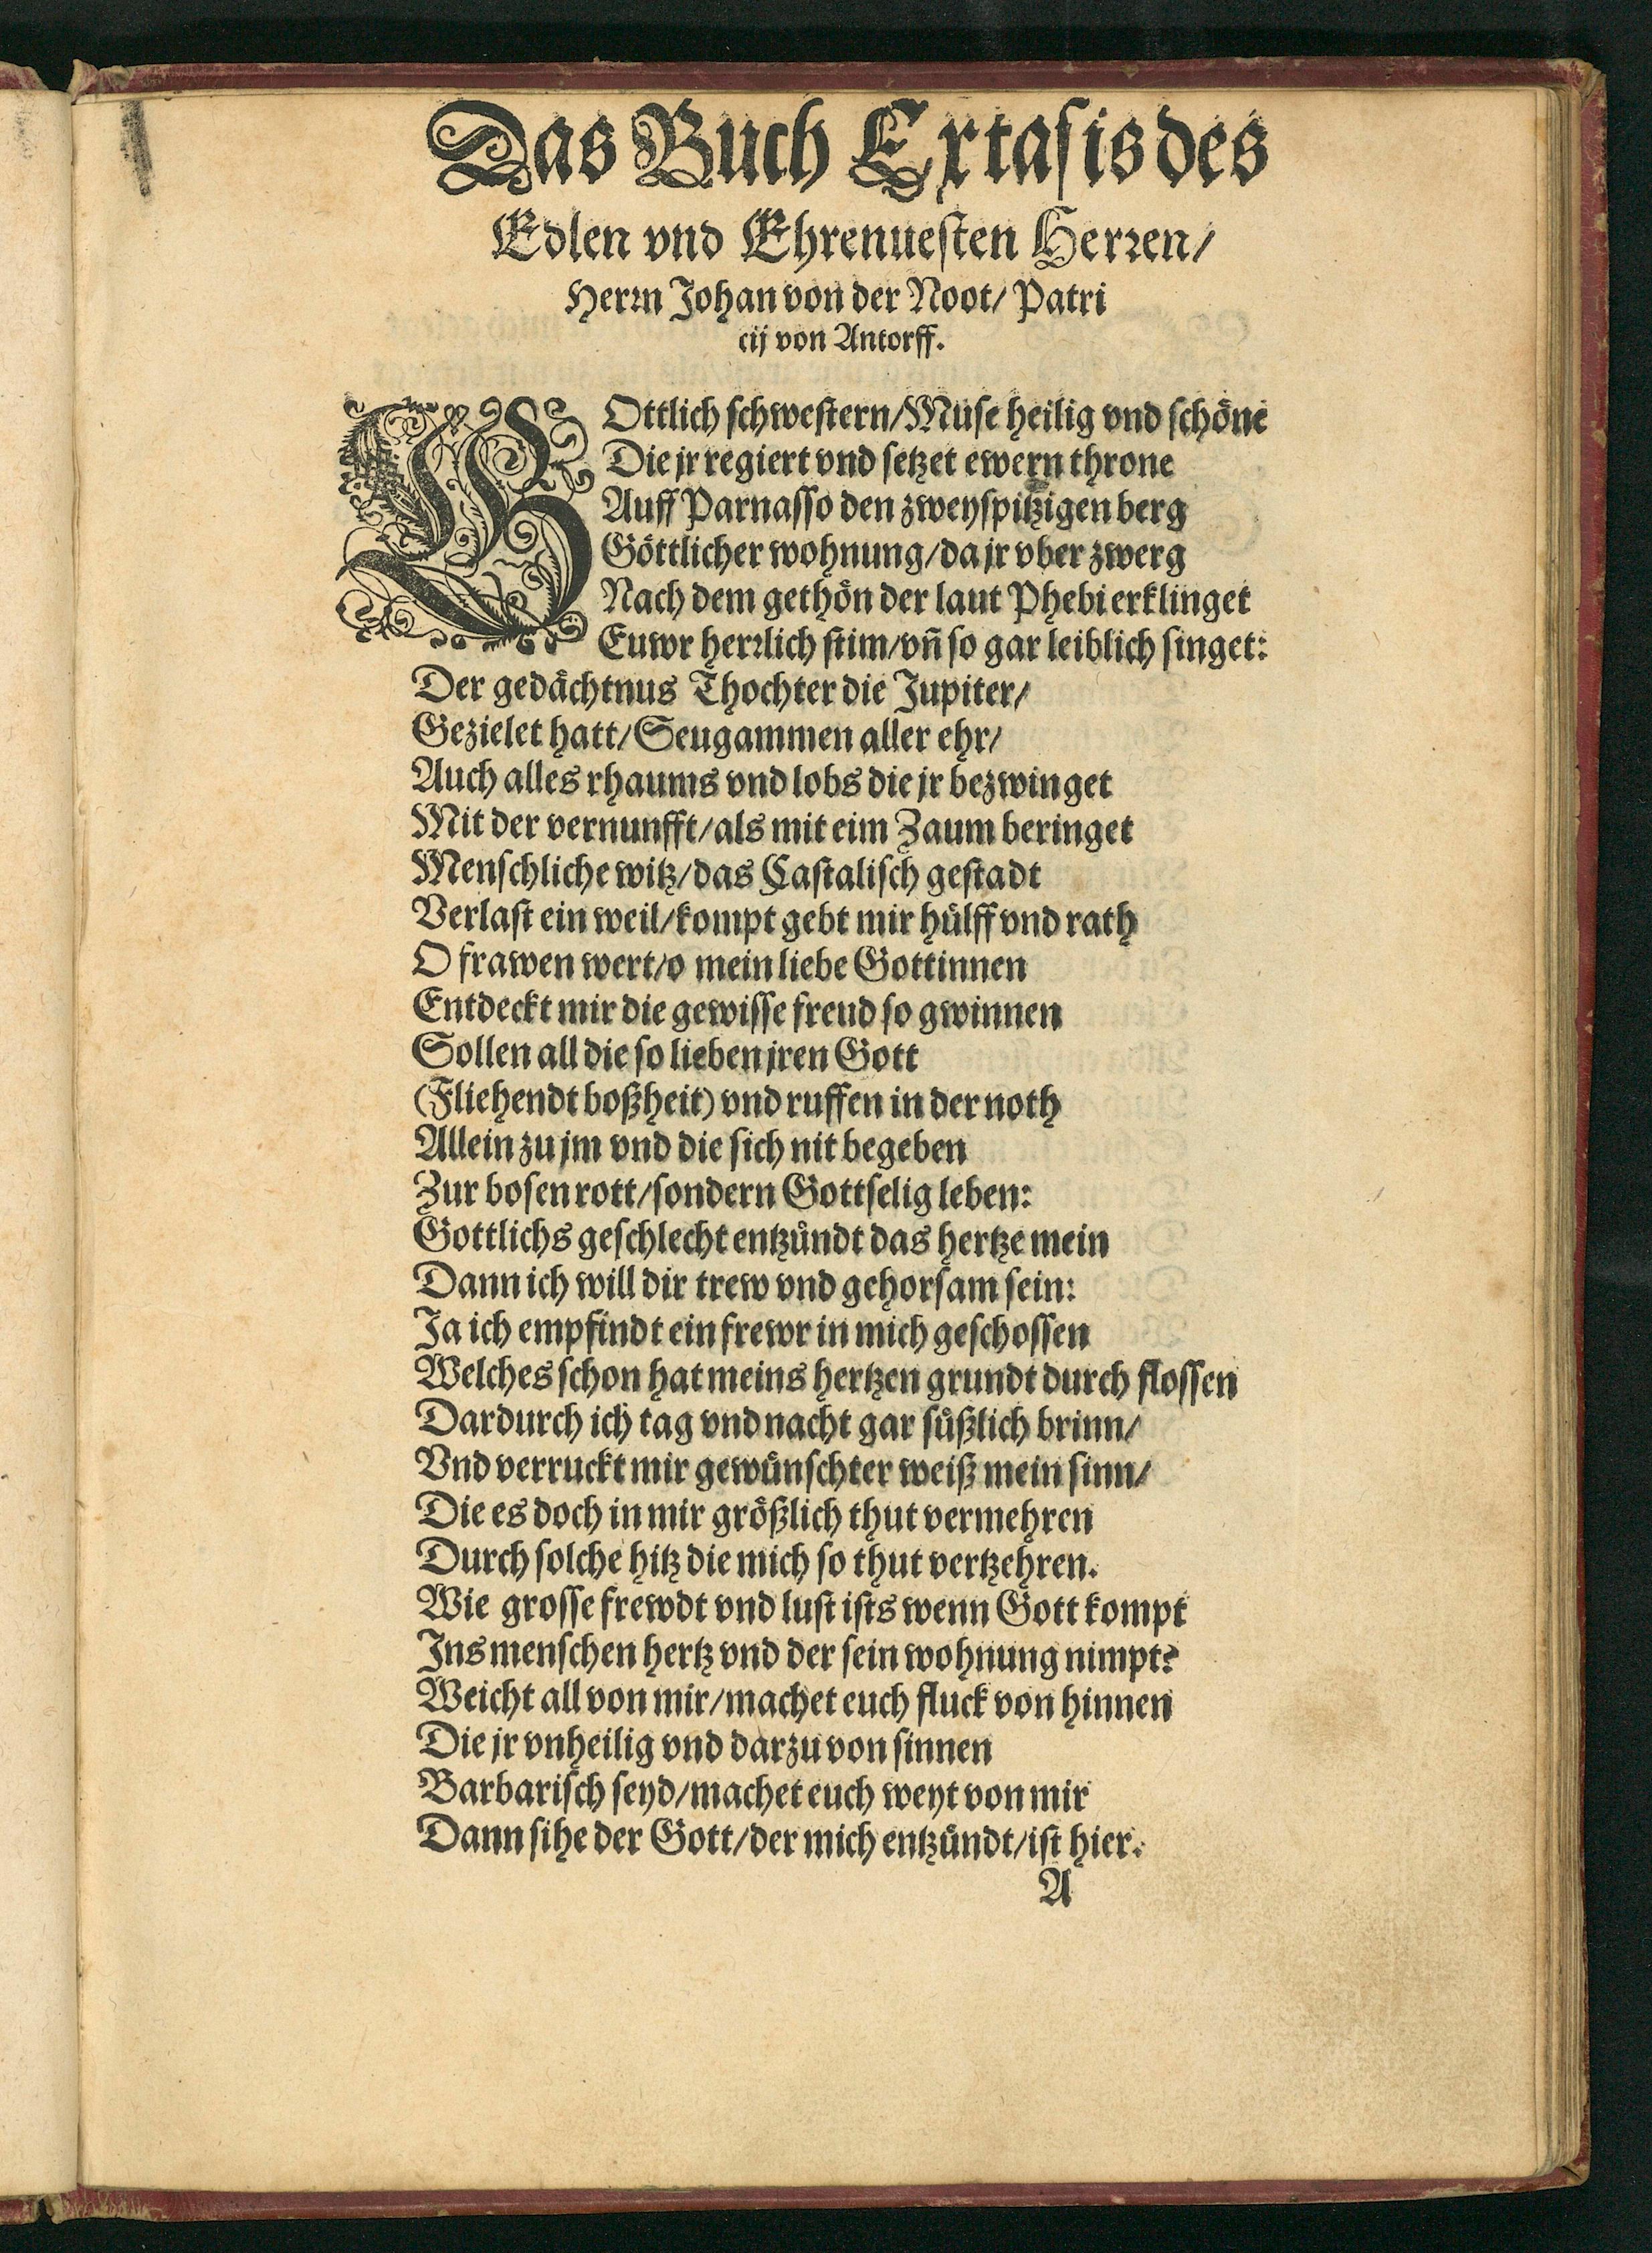 Das Buch Extasis des
Edlen vnd Ehrenuesten Herꝛen/
Herꝛn Johan von der Noot/ Patri
cij von Antorff.
GOttlich schwestern/Muse heilig vnd schöne
Die jr regiert vnd setzet ewern throne
Auff Parnasso den zweyspitzigen berg
Göttlicher wohnung/da jr vber zwerg
Nach dem gethön der laut Phebi erklinget
Euwr herꝛlich stim/vñ so gar leiblich singet:
Der gedächtnus Thochter die Jupiter/
Gezielet hatt/Seugammen aller ehr/
Auch alles rhaums vnd lobs die jr bezwinget
Mit der vernunfft/als mit eim Zaum beringet
Menschliche witz/das Castalisch gestadt
Verlast ein weil/kompt gebt mir hülff vnd rath
O frawen wert/o mein liebe Gottinnen
Entdeckt mir die gewisse freud so gwinnen
Sollen all die so lieben jren Gott
(Fliehendt boßheit) vnd ruffen in der noth
Allein zu jm vnd die sich nit begeben
Zur bosen rott/sondern Gottselig leben:
Gottlichs geschlecht entzündt das hertze mein
Dann ich will dir trew vnd gehorsam sein:
Ja ich empfindt ein frewr in mich geschossen
Welches schon hat meins hertzen grundt durch flossen
Dardurch ich tag vnd nacht gar süßlich brinn/
Vnd verruckt mir gewünschter weiß mein sinn/
Die es doch in mir größlich thut vermehren
Durch solche hitz die mich so thut vertzehren.
Wie grosse frewdt vnd lust ists wenn Gott kompt
Ins menschen hertz vnd der sein wohnung nimpt?
Weicht all von mir/machet euch fluck von hinnen
Die jr vnheilig vnd darzu von sinnen
Barbarisch seyd/machet euch weyt von mir
Dann sihe der Gott/der mich entzündt/ist hier.
A